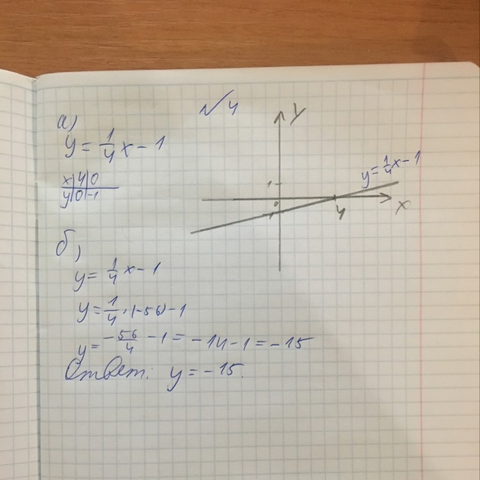 №4
а)
y = 1/4 x - 1
x | 4 | 0
y | 0 | -1
y
1
0
1
4
x
y = 1/4 x - 1
б)
y = 1/4 x - 1
y = 1/4 · (-56) - 1
y = -56/4 - 1 = -14 - 1 = -15
Ответ: y = -15.